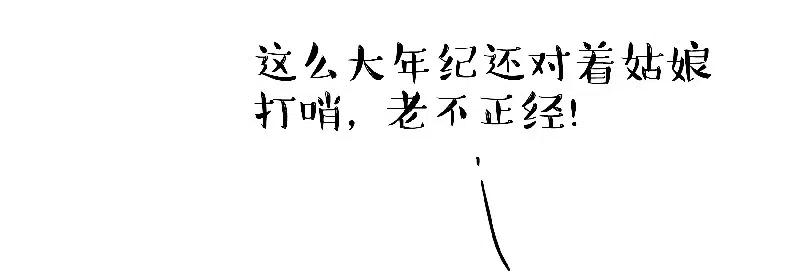 这么大年纪还对着姑娘
打哨，老不正经！